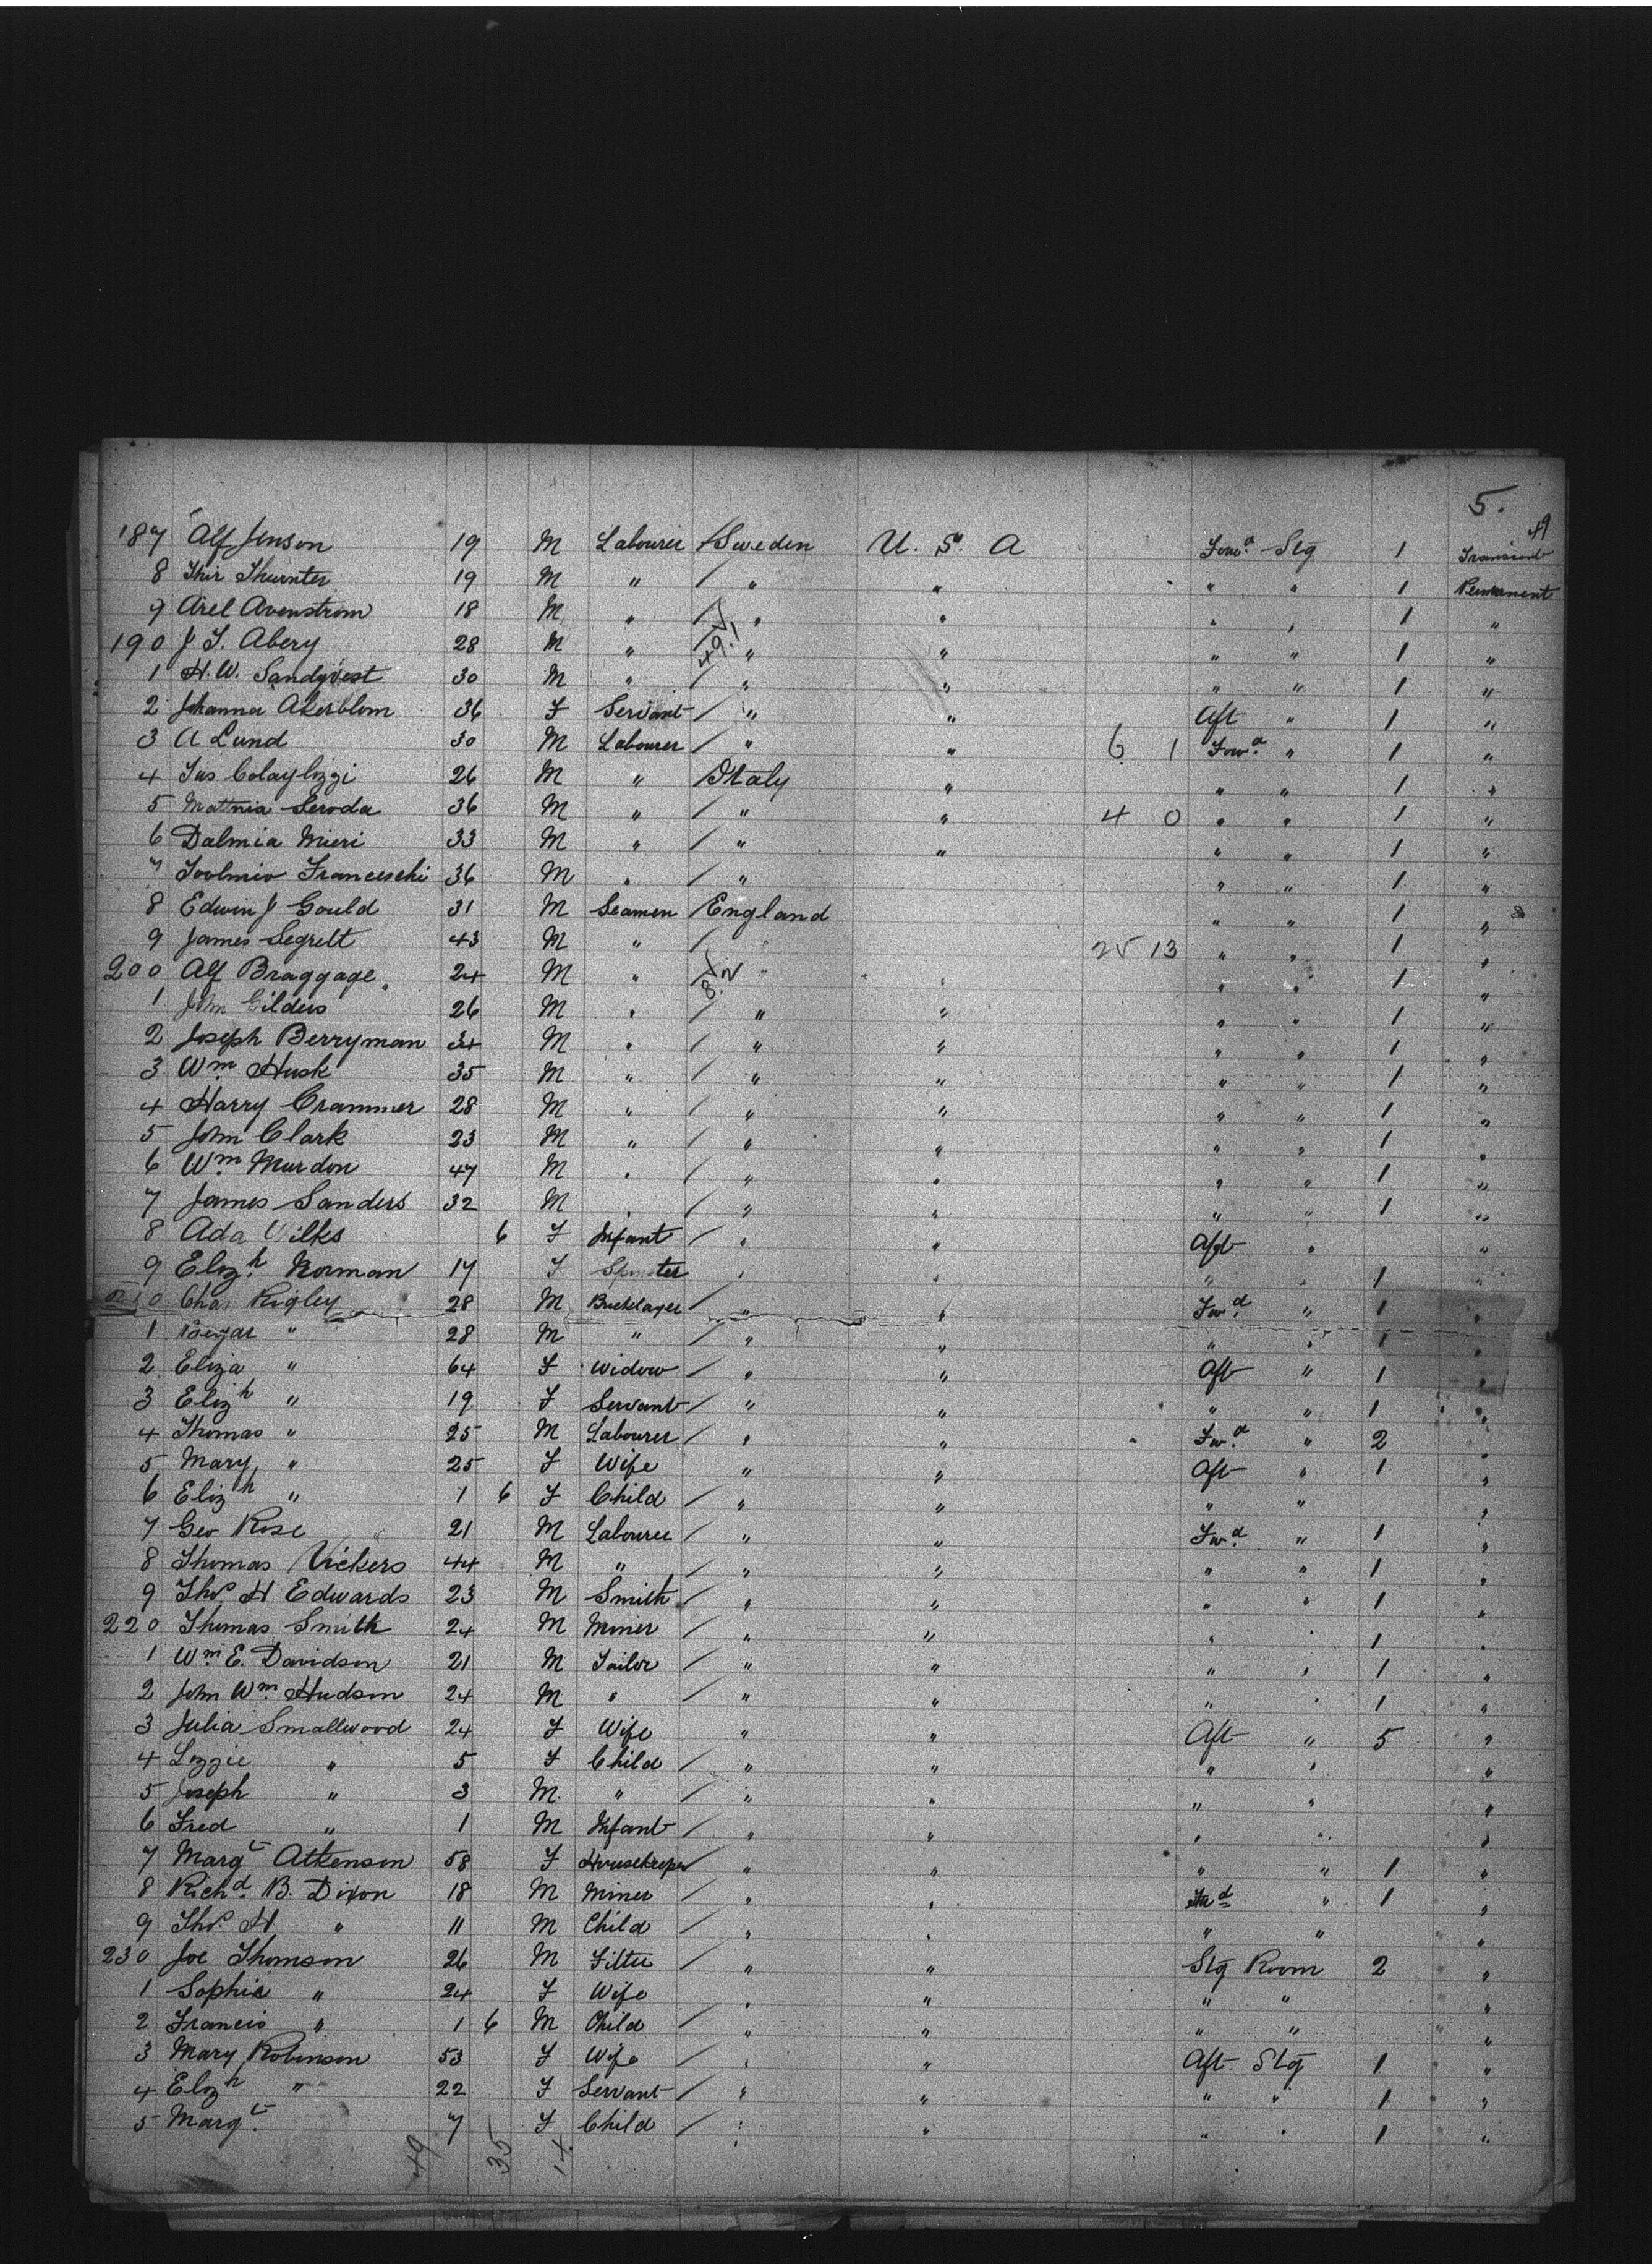 5.
49
187 Alf Jenson 19 M Labourer / Sweden U. S. A Forwd Stg 1 Transient
8 Thir Thurnter 19 M " / " " " " 1 Permanent
9 Axel Avenstrom 18 M " / " " " " 1 "
190 J. T. Abery 28 M " / " " " " 1 "
1 H. W. Sandqvist 30 M " / " " " " 1 "
2 Johanna Akerblom 36 F Servant / " " Aft " 1 "
3 A Lund 30 M Labourer / " " 6 1 Forwd " 1 "
4 Colaylizzi 26 M " / Italy " " " 1 "
5 Mattnia Seroda 36 M " / " " 4 0 " " 1 "
6 Dalmia Mieri 33 M " / " " " " 1 "
7 Toolmio Franceschi 36 M " / " " " 1 "
8 Edwin J Gould 31 M Seamen / England " " 1 "
9 James Segrett 43 M " / " 25 13 " " 1 "
200 Alf Braggage 24 M " / " " " " 1 "
1 John Gilders 26 M " / " " " " 1 "
2 Joseph Berryman 34 M " / " " " " 1 "
3 Wm Husk 35 M " / " " " " 1 "
4 Harry Crammer 28 M " / " " " " 1 "
5 John Clark 23 M " / " " " " 1 "
6 Wm Murdon 47 M " / " " " " 1 "
7 James Sanders 32 M " / " " " " 1 "
8 Ada Wilks 6 F Infant / " " Aft " "
9 Elizh Norman 17 F Spinster / " " " " 1 "
210 Chas Rigley 28 M Bricklayer / " " Fwd " 1 "
1 " 28 M " / " " " " 1 "
2 Eliza " 64 F Widow / " " Aft " 1 "
3 Elizh " 19 F Servant / " " " " 1 "
4 Thomas " 25 M Labourer / " " Fwd " 2 "
5 Mary " 25 F Wife " " Aft " 1 "
6 Elizh " 1 6 F Child / " " " " "
7 Geo Rose 21 M Labourer / " " Fwd " 1 "
8 Thomas Vickers 44 M " / " " " " 1 "
9 Thos H Edwards 23 M Smith / " " " " 1 "
220 Thomas Smith 24 M Miner / " " " " 1 "
1 Wm E. Davidson 21 M Tailor / " " " " 1 "
2 John Wm Hudson 24 M " / " " " " 1 "
3 Julia Smallwood 24 F Wife " " Aft " 5 "
4 Lizzie " 5 F Child / " " " " "
5 Joseph " 3 M " / " " " " "
6 Fred " 1 M Infant / " " " " "
7 Margt Atkenson 58 F Housekeeper / " " " " 1 "
8 Richd B. Dixon 18 M Miner / " " Fwd " 1 "
9 Thos H " 11 M Child / " " " " "
230 Joe Thomson 26 M Fitter / " " Stg Room 2 "
1 Sophia " 24 F Wife " " " " "
2 Francis " 1 6 M Child / " " " " "
3 Mary Robinson 53 F Wife / " " Aft Stg 1 "
4 Elizh " 22 F Servant / " " " " 1 "
5 Margt 7 F Child / " " " " 1 "
49 35 14